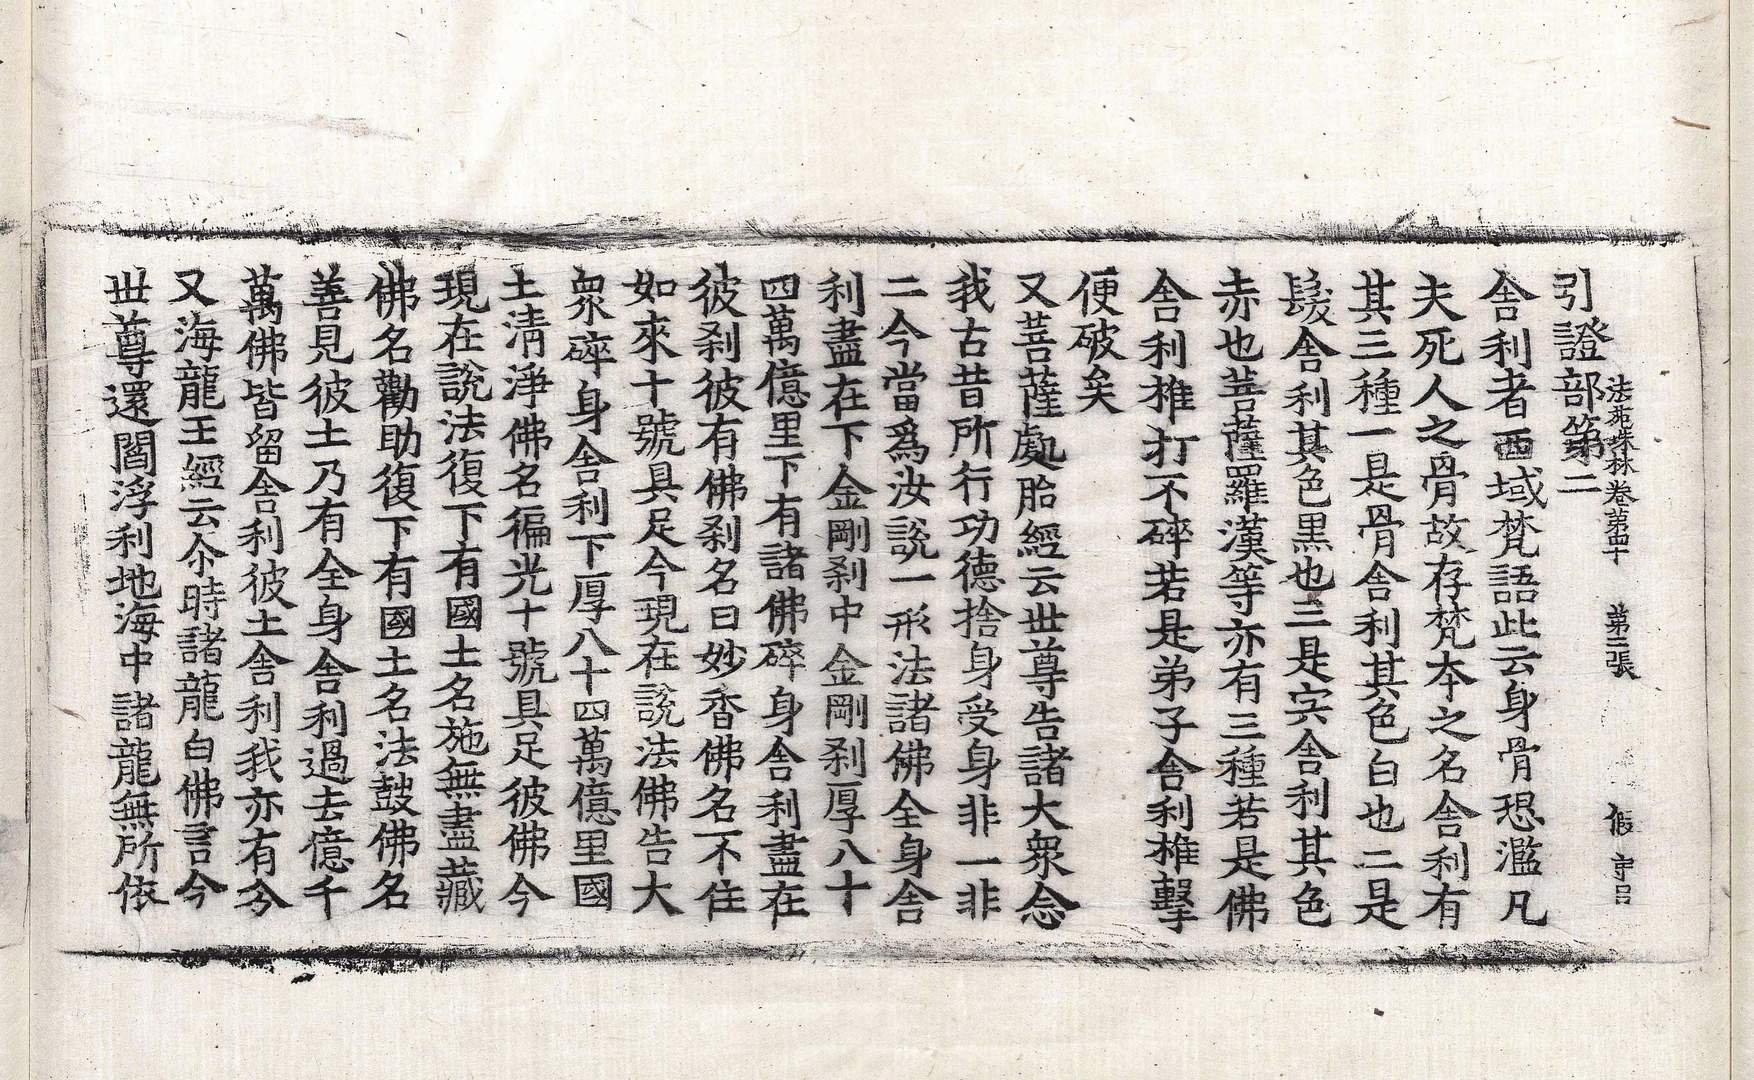 法苑珠林卷第四十　第三張　假　守呂
引證部第二
舍利者西域梵語此云身骨恐濫凡
夫死人之骨故存梵本之名舍利有
其三種一是骨舍利其色白也二是
髮舍利其色黑也三是宍舍利其色
赤也菩薩羅漢等亦有三種若是佛
舍利椎打不碎若是弟子舍利椎擊
便破矣
又菩薩處胎經云世尊告諸大衆念
我古昔所行功德捨身受身非一非
二今當爲汝說一形法諸佛全身舍
利盡在下金剛剎中金剛剎厚八十
四萬億里下有諸佛碎身舍利盡在
彼剎彼有佛剎名曰妙香佛名不住
如來十號具足今現在說法佛告大
衆碎身舍利下厚八十四萬億里國
土清淨佛名徧光十號具足彼佛今
現在說法復下有國土名施無盡藏
佛名勸助復下有國土名法鼓佛名
善見彼土乃有全身舍利過去億千
萬佛皆留舍利彼土舍利我亦有分
又海龍王經云尒時諸龍白佛言今
世尊還閻浮利地海中諸龍無所依